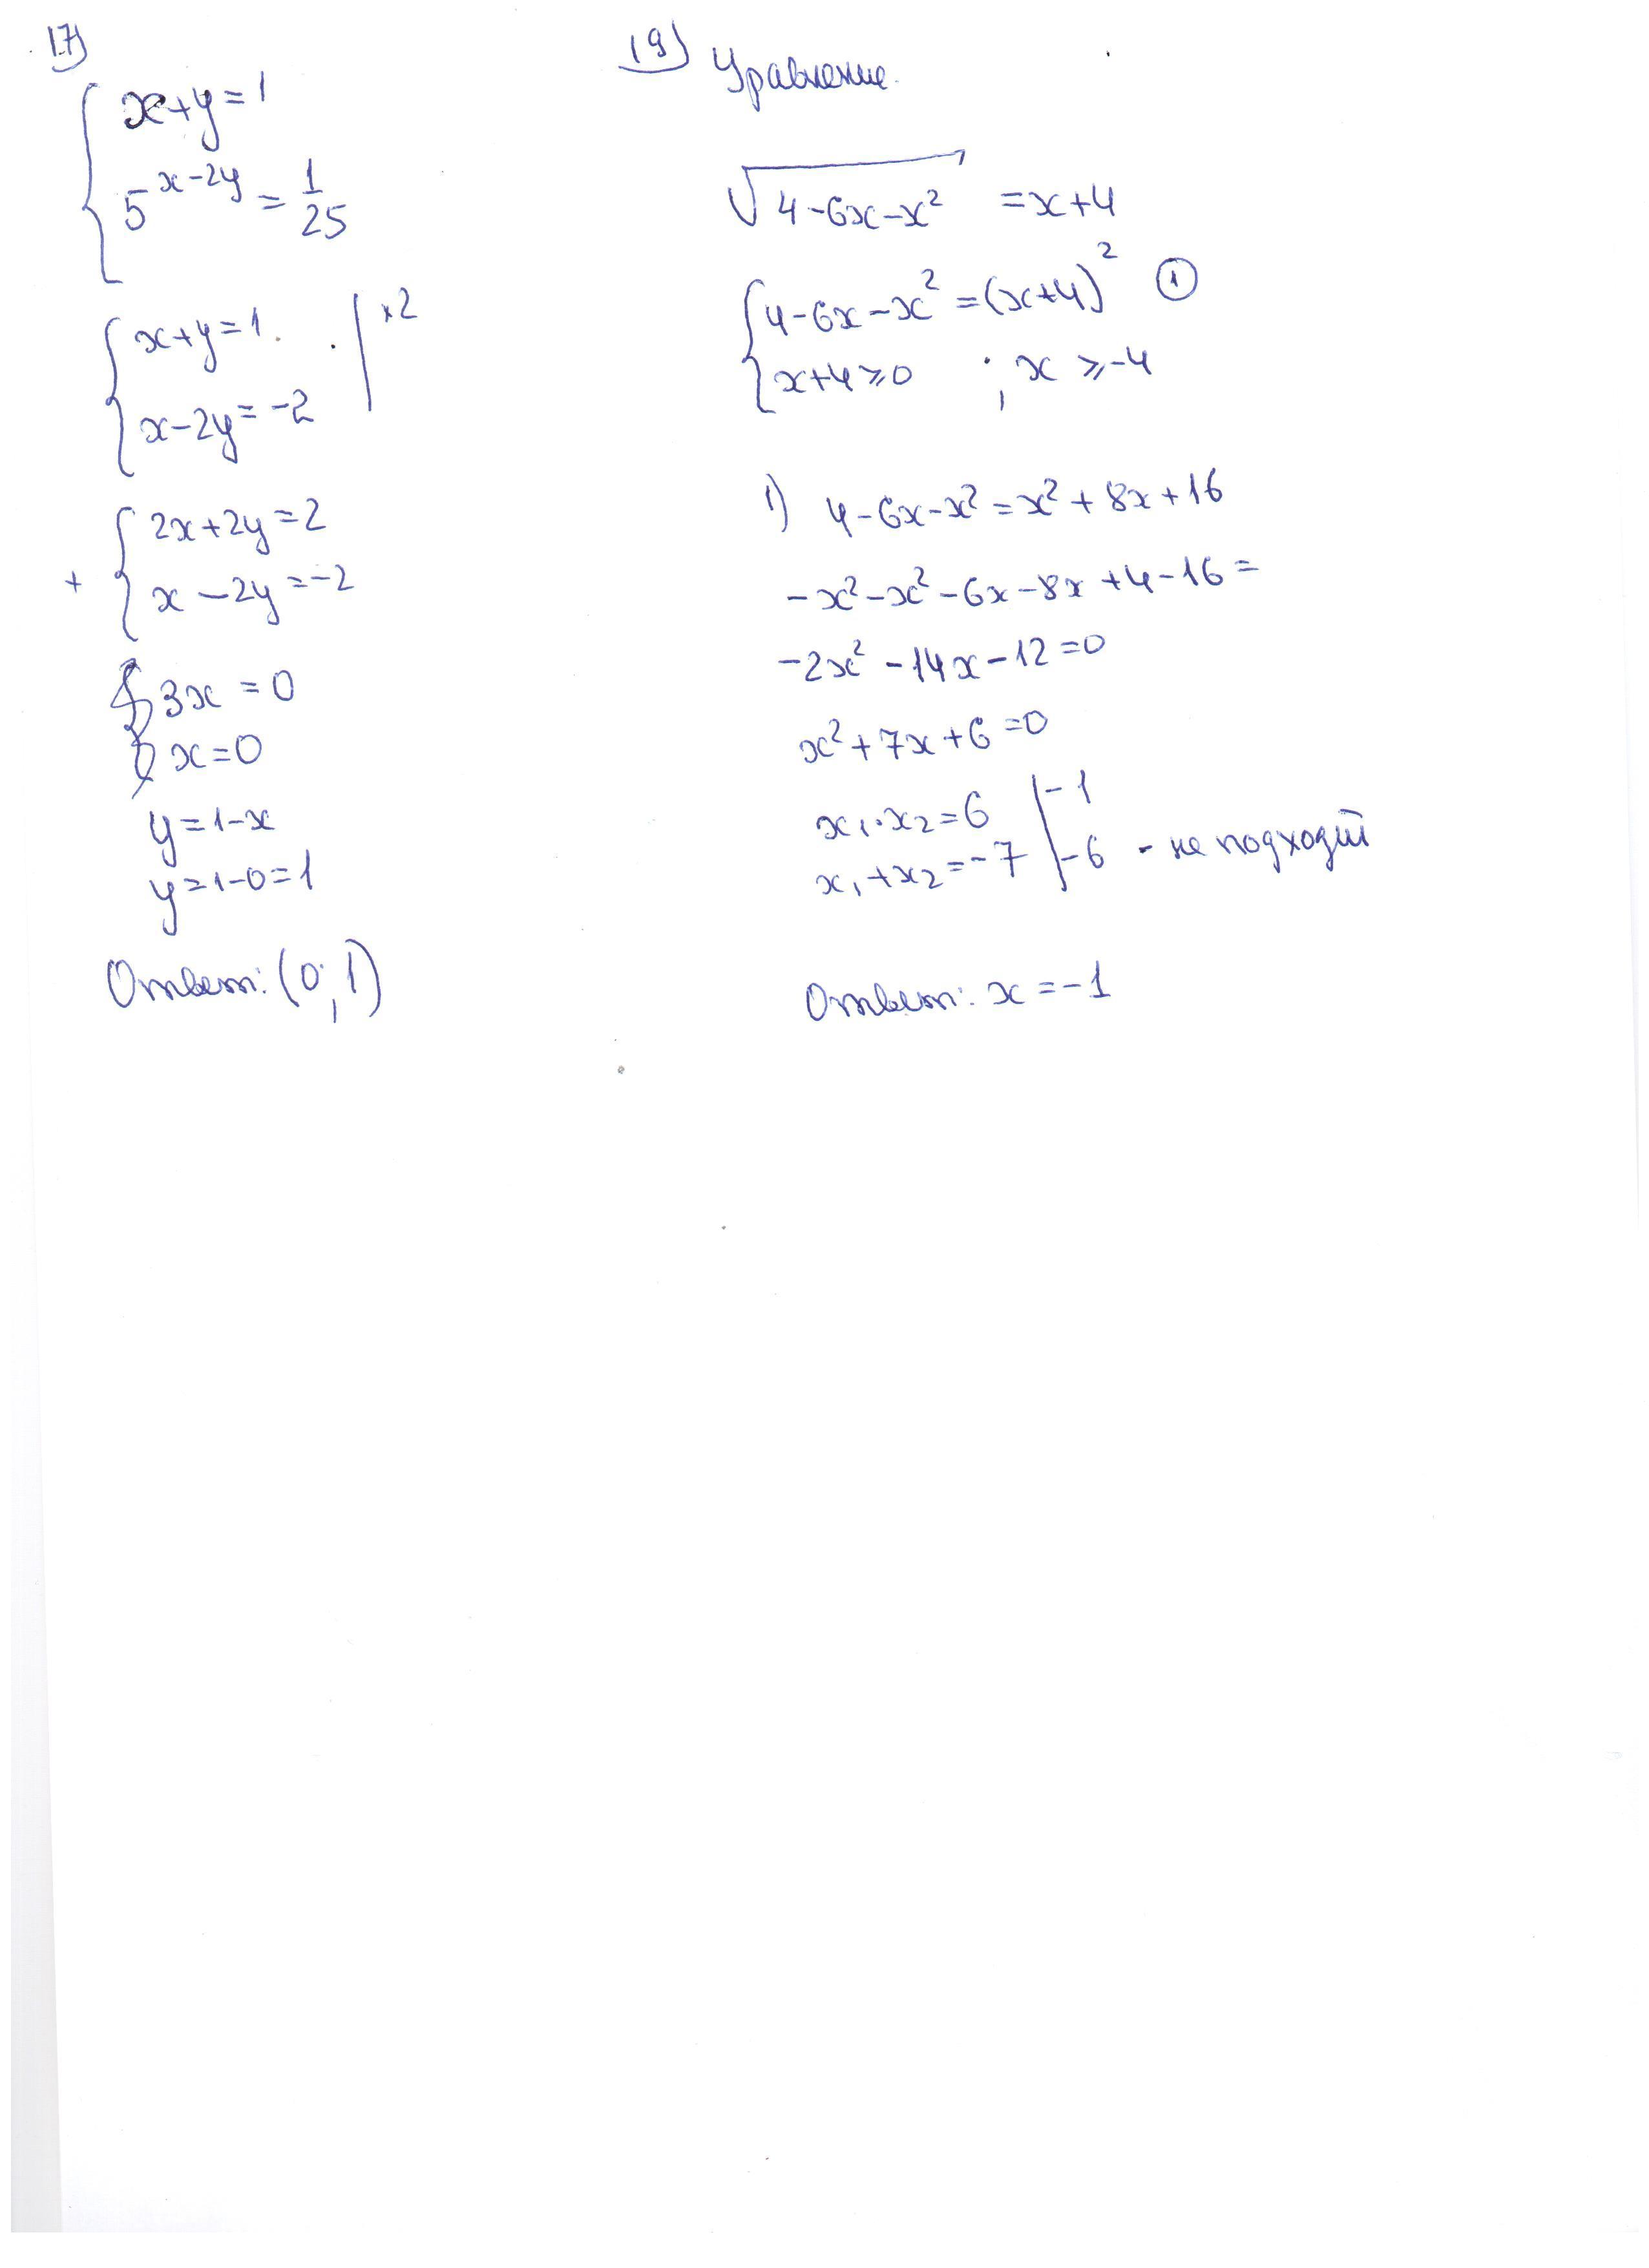 17)
x+y=1
5^(x-2y) = 1/25
x+y=1. | ×2
x-2y=-2
+ 2x+2y=2
x-2y=-2
3x=0
x=0
y=1-x
y=1-0=1
Ответ: (0;1)
19) Уравнение.
√(4-6x-x²) =x+4
4-6x-x²=(x+4)² ①
x+4⩾0 ; x⩾-4
1) 4-6x-x²=x²+8x+16
-x²-x²-6x-8x+4-16=
-2x²-14x-12=0
x²+7x+6=0
x₁·x₂=6 | -1
x₁+x₂=-7 | -6 - не подходит
Ответ: x=-1